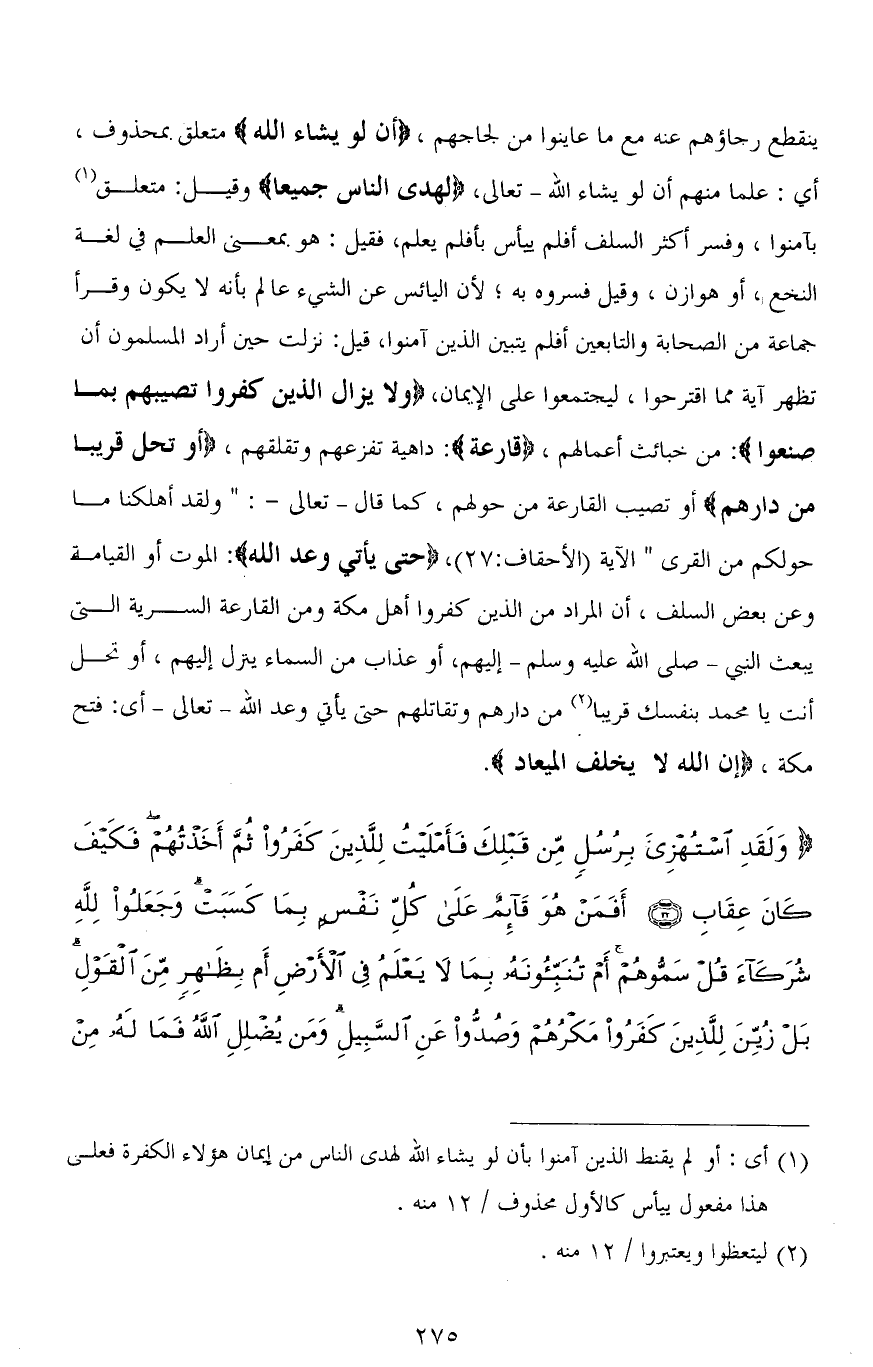 ينقطع رجاؤهم عنه مع ما عاينوا من لجاجهم ، ﴿أن لو يشاء الله﴾ متعلق بمحذوف ،
أي : علما منهم أن لو يشاء الله - تعالى، ﴿لهدى الناس جميعا﴾ وقيل: متعلق(١)
بآمنوا ، وفسر أكثر السلف أفلم ييأس بأفلم يعلم، فقيل : هو بمعنى العلم في لغة
النخع ، أو هوازن ، وقيل فسروه به ؛ لأن اليائس عن الشيء عالم بأنه لا يكون وقرأ
جماعة من الصحابة والتابعين أفلم يتبين الذين آمنوا، قيل: نزلت حين أراد المسلمون أن
تظهر آية مما اقترحوا ، ليجتمعوا على الإيمان، ﴿ولا يزال الذين كفروا تصيبهم بما
صنعوا﴾: من خبائث أعمالهم ، ﴿قارعة﴾: داهية تفزعهم وتقلقهم ، ﴿أو تحل قريبا
من دارهم﴾ أو تصيب القارعة من حولهم ، كما قال - تعالى - : " ولقد أهلكنا ما
حولكم من القرى " الآية (الأحقاف:٢٧)، ﴿حتى يأتي وعد الله﴾: الموت أو القيامة
وعن بعض السلف ، أن المراد من الذين كفروا أهل مكة ومن القارعة السرية التى
يبعث النبي - صلى الله عليه وسلم - إليهم، أو عذاب من السماء ينزل إليهم ، أو تحل
أنت يا محمد بنفسك قريبا(٢) من دارهم وتقاتلهم حتى يأتي وعد الله - تعالى - أى: فتح
مكة ، ﴿إن الله لا يخلف الميعاد ﴾.
﴿ وَلَقَدِ ٱسْتُهْزِئَ بِرُسُلٍ مِّن قَبْلِكَ فَأَمْلَيْتُ لِلَّذِينَ كَفَرُوا۟ ثُمَّ أَخَذْتُهُمْ ۖ فَكَيْفَ
كَانَ عِقَابِ ۝٣٢ أَفَمَنْ هُوَ قَآئِمٌ عَلَىٰ كُلِّ نَفْسٍۭ بِمَا كَسَبَتْ ۗ وَجَعَلُوا۟ لِلَّهِ
شُرَكَآءَ قُلْ سَمُّوهُمْ ۚ أَمْ تُنَبِّـُٔونَهُۥ بِمَا لَا يَعْلَمُ فِى ٱلْأَرْضِ أَم بِظَـٰهِرٍ مِّنَ ٱلْقَوْلِ ۗ
بَلْ زُيِّنَ لِلَّذِينَ كَفَرُوا۟ مَكْرُهُمْ وَصُدُّوا۟ عَنِ ٱلسَّبِيلِ ۗ وَمَن يُضْلِلِ ٱللَّهُ فَمَا لَهُۥ مِنْ
(١) أى : أو لم يقنط الذين آمنوا بأن لو يشاء الله لهدى الناس من إيمان هؤلاء الكفرة فعلى
هذا مفعول ييأس كالأول محذوف / ١٢ منه .
(٢) ليتعظوا ويعتبروا / ١٢ منه .
٢٧٥